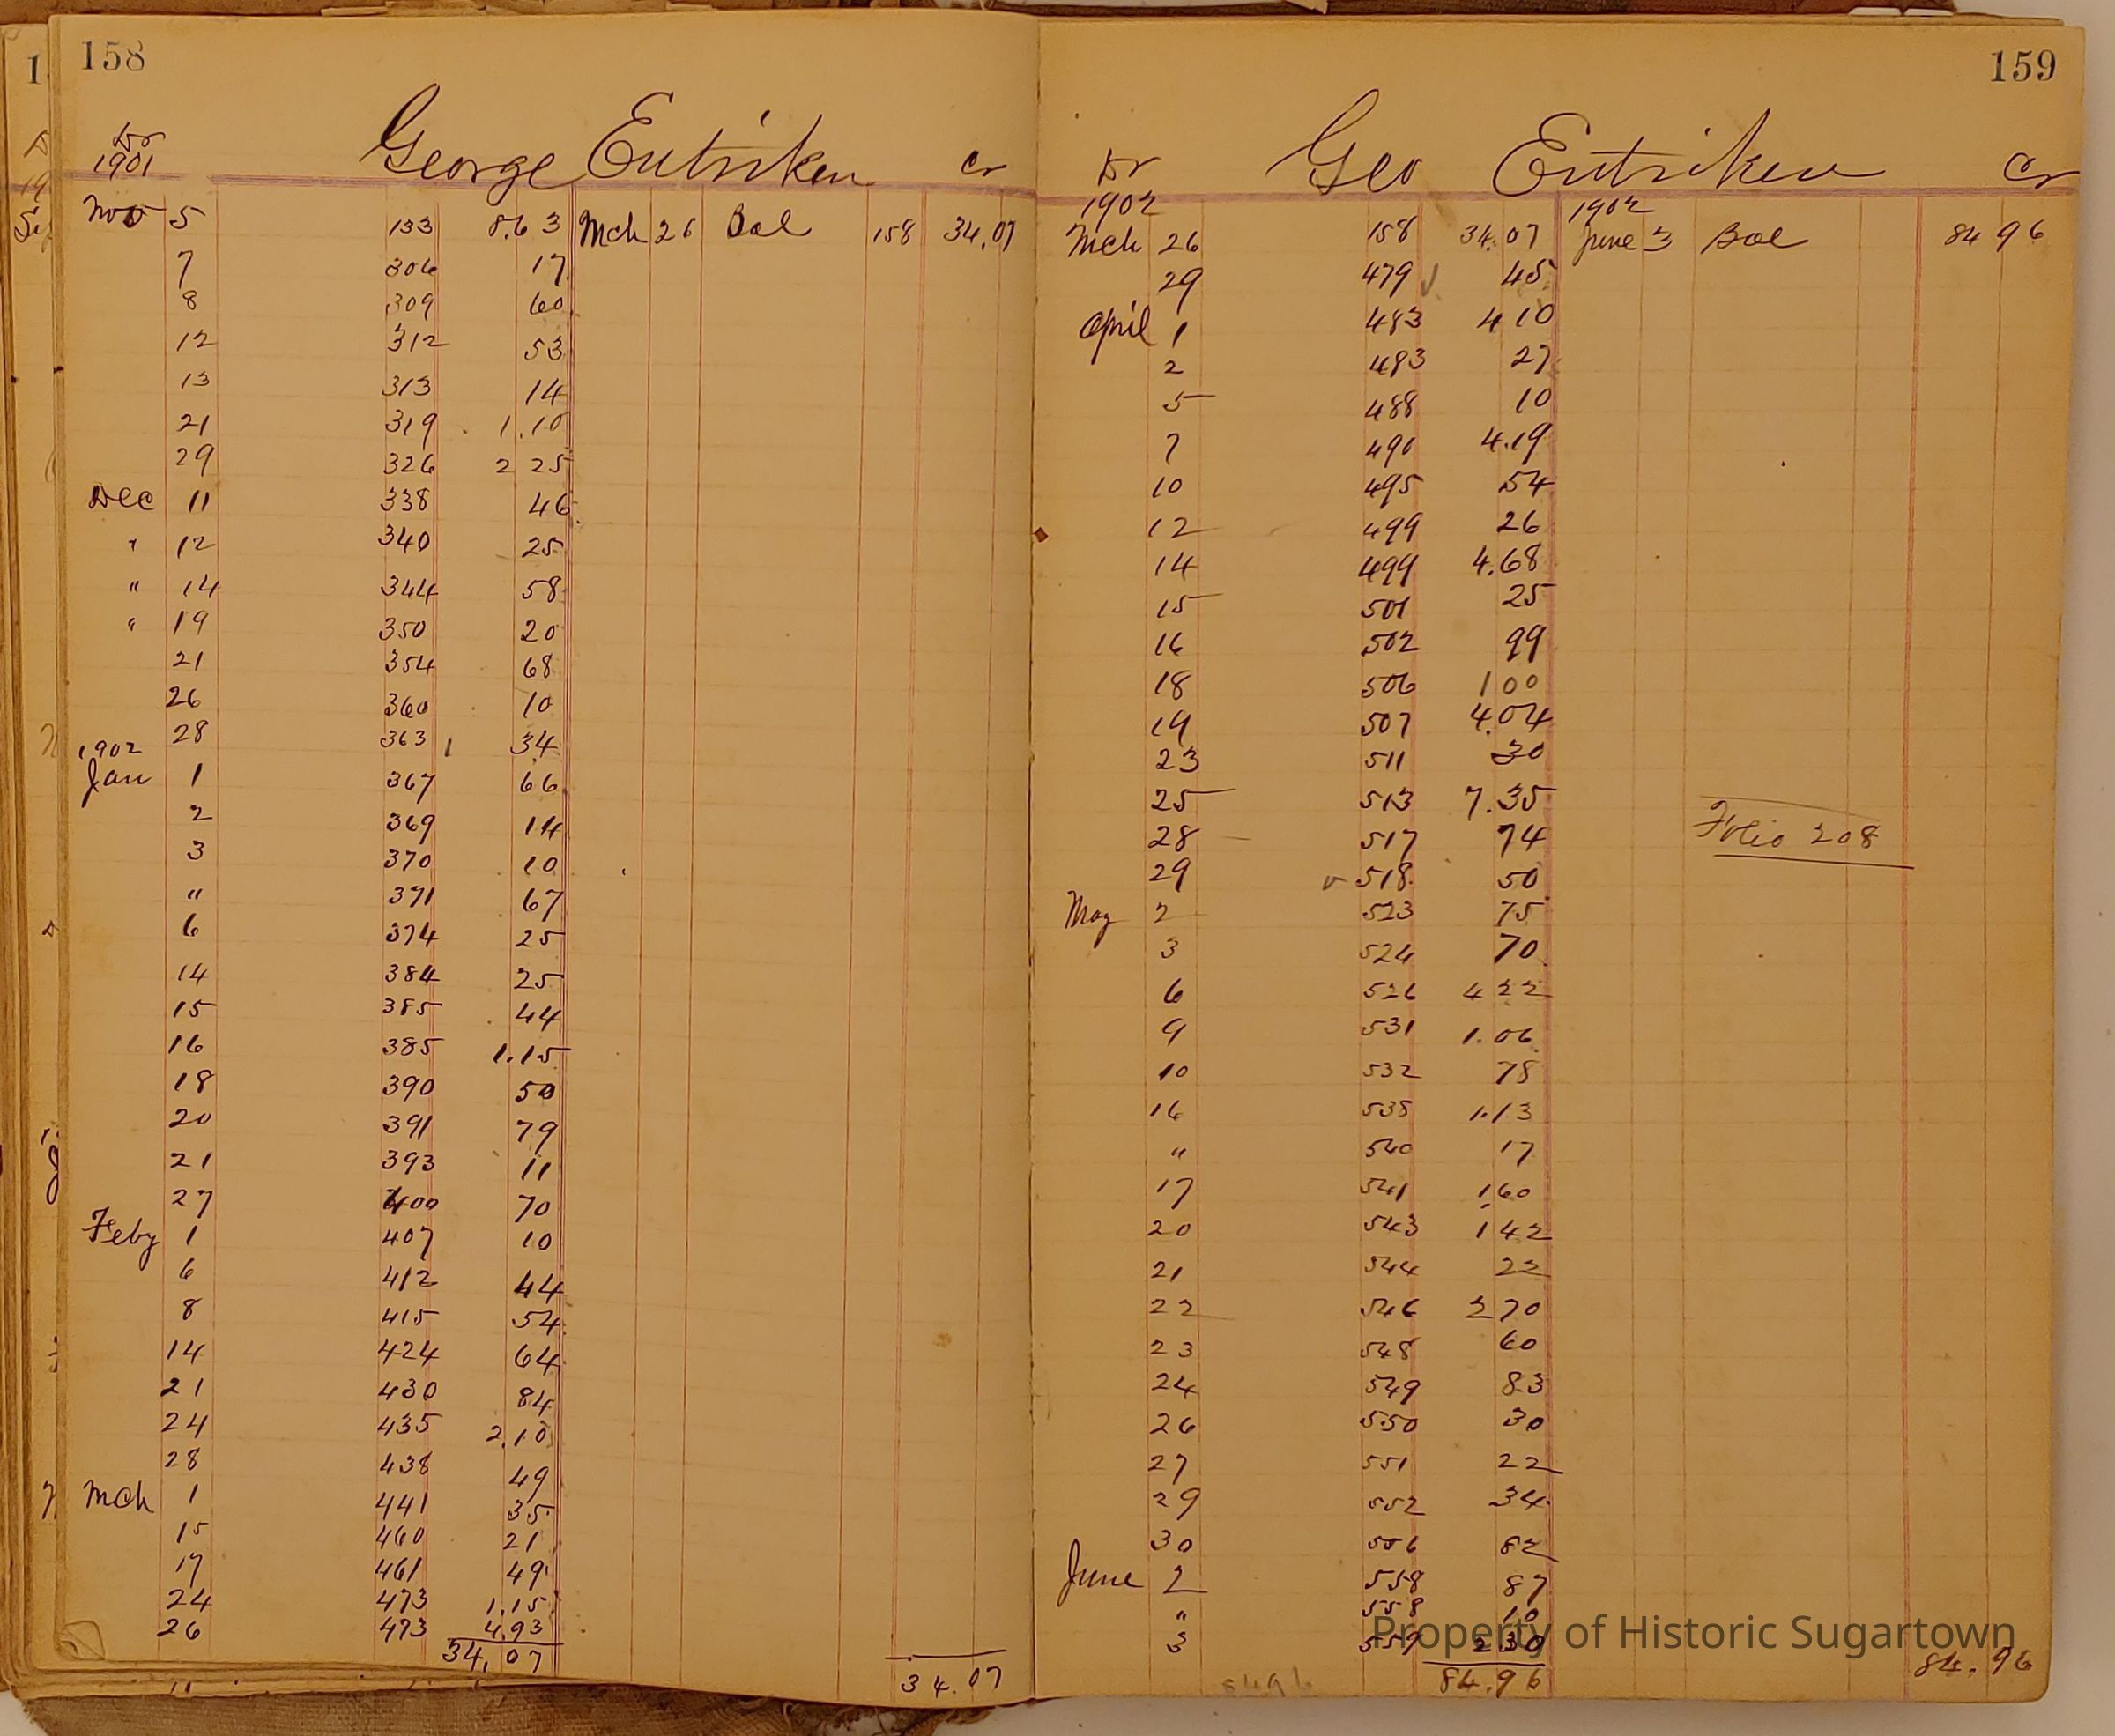 158
George Entriken
Dr Cr
1901
Nov 5 133 8.63 Mch 26 Bal 158 34.07
7 306 17
8 309 60
12 312 53
13 313 14
21 319 1.10
29 326 2 25
Dec 11 338 46
" 12 340 25
" 14 344 58
" 19 350 20
21 354 68
26 360 10
28 363 34
1902
Jan 1 367 66
2 369 14
3 370 10
" 371 67
6 374 25
14 384 25
15 385 44
16 385 1.15
18 390 50
20 391 79
21 393 11
27 400 70
Feby 1 407 10
6 412 44
8 415 54
14 424 64
21 430 84
24 435 2.10
28 438 49
Mch 1 441 35
15 460 21
17 461 49
24 473 1.15
26 473 4.93
34.07 34.07
159
Dr Geo Entriken Cr
1902 1902
Mch 26 158 34.07 June 3 Bal 84 96
29 479 45
April 1 483 4 10
2 483 27
5 488 10
7 490 4.19
10 495 54
12 499 26
14 499 4.68
15 501 25
16 502 99
18 506 1 00
19 507 4.04
23 511 30
25 513 7.35
28 517 74 Folio 208
29 518 50
May 2 523 75
3 524 70
6 526 4 22
9 531 1.06
10 532 78
16 538 1.13
" 540 17
17 541 1 60
20 543 1 42
21 544 22
22 546 2 70
23 548 60
24 549 83
26 550 30
27 551 22
29 552 34
30 556 82
June 2 558 87
" 558 10
3 559 2 30
8496 84.96 84.96
Property of Historic Sugartown